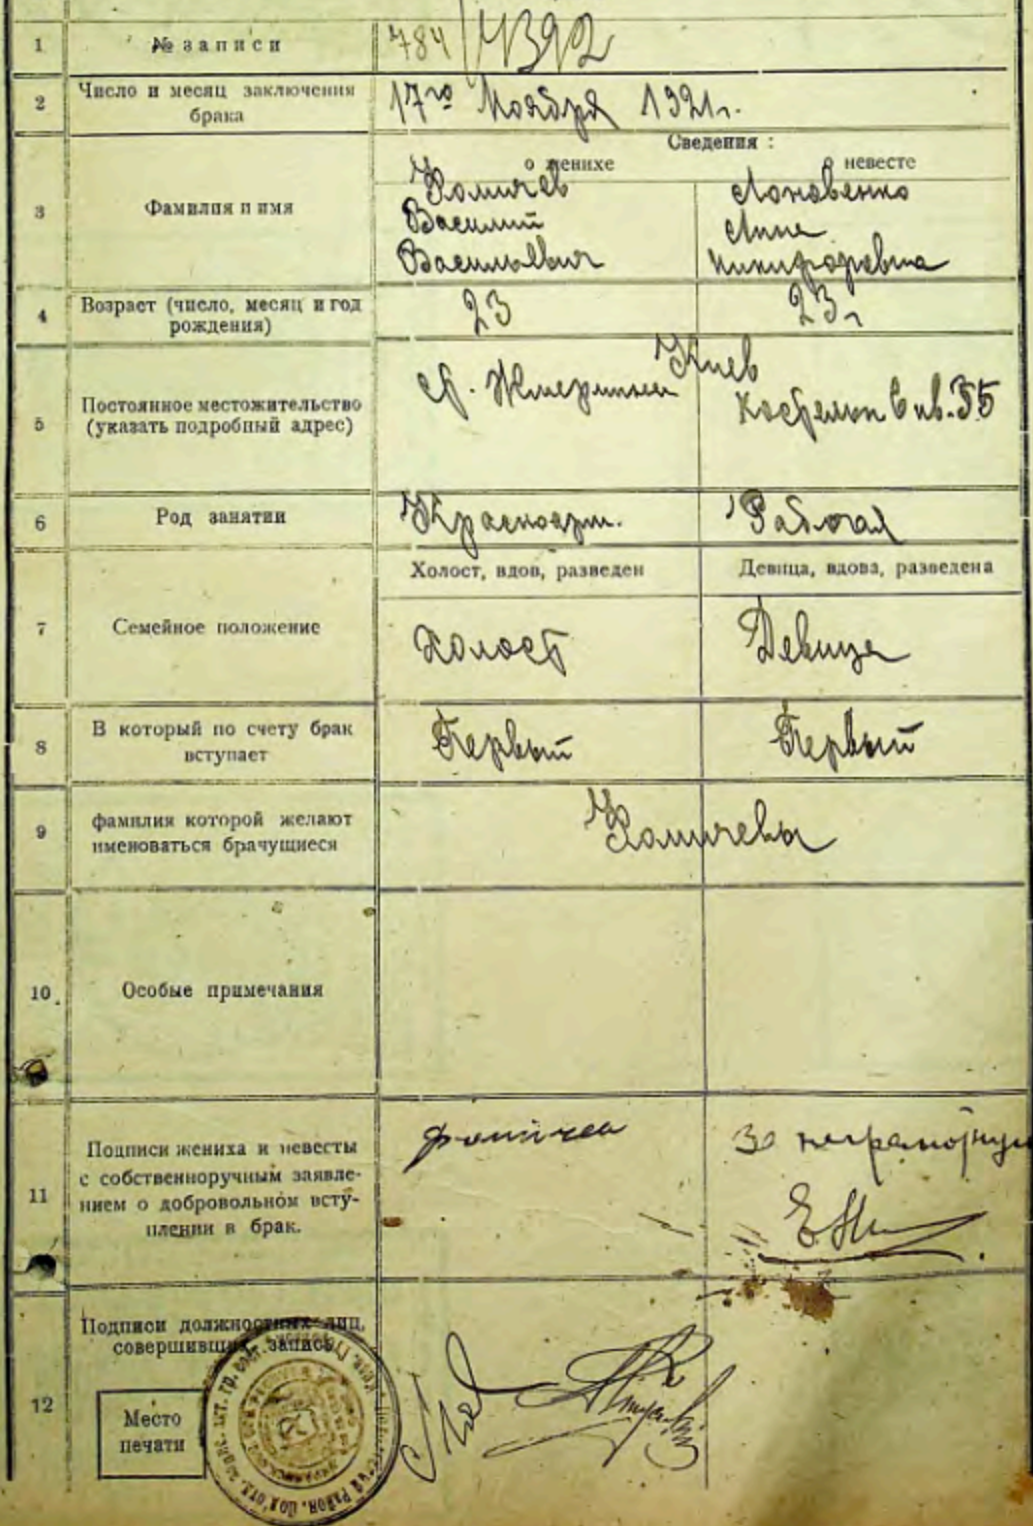 1 № записи 784/1392
2 Число и месяц заключения
брака
17го Ноября 1921г.
Сведения :
о женихе о невесте
3 Фамилия и имя
Фомичев
Василий
Васильевич
Анна
Никифоровна
4 Возраст (число, месяц и год
рождения)
23 23 г
5 Постоянное местожительство
(указать подробный адрес)
Киев
6 Род занятии Красноарм. Рабочая
Холост, вдов, разведен Девица, вдова, разведена
7 Семейное положение Холост Девица
8 В который по счету брак
вступает
Первый Первый
9 фамилия которой желают
именоваться брачущиеся
Фомичевы
10 Особые примечания
11 Подписи жениха и невесты
с собственноручным заявле-
нием о добровольном всту-
плении в брак.
Фомичев За неграмотную
12 Подписи должностных лиц,
совершивших запись
Место
печати